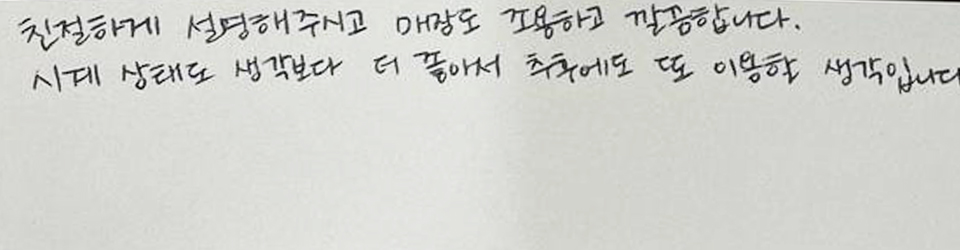 친절하게 설명해주시고 매장도 조용하고 깔끔합니다.
시계 상태도 생각보다 더 좋아서 추후에도 또 이용할 생각입니다